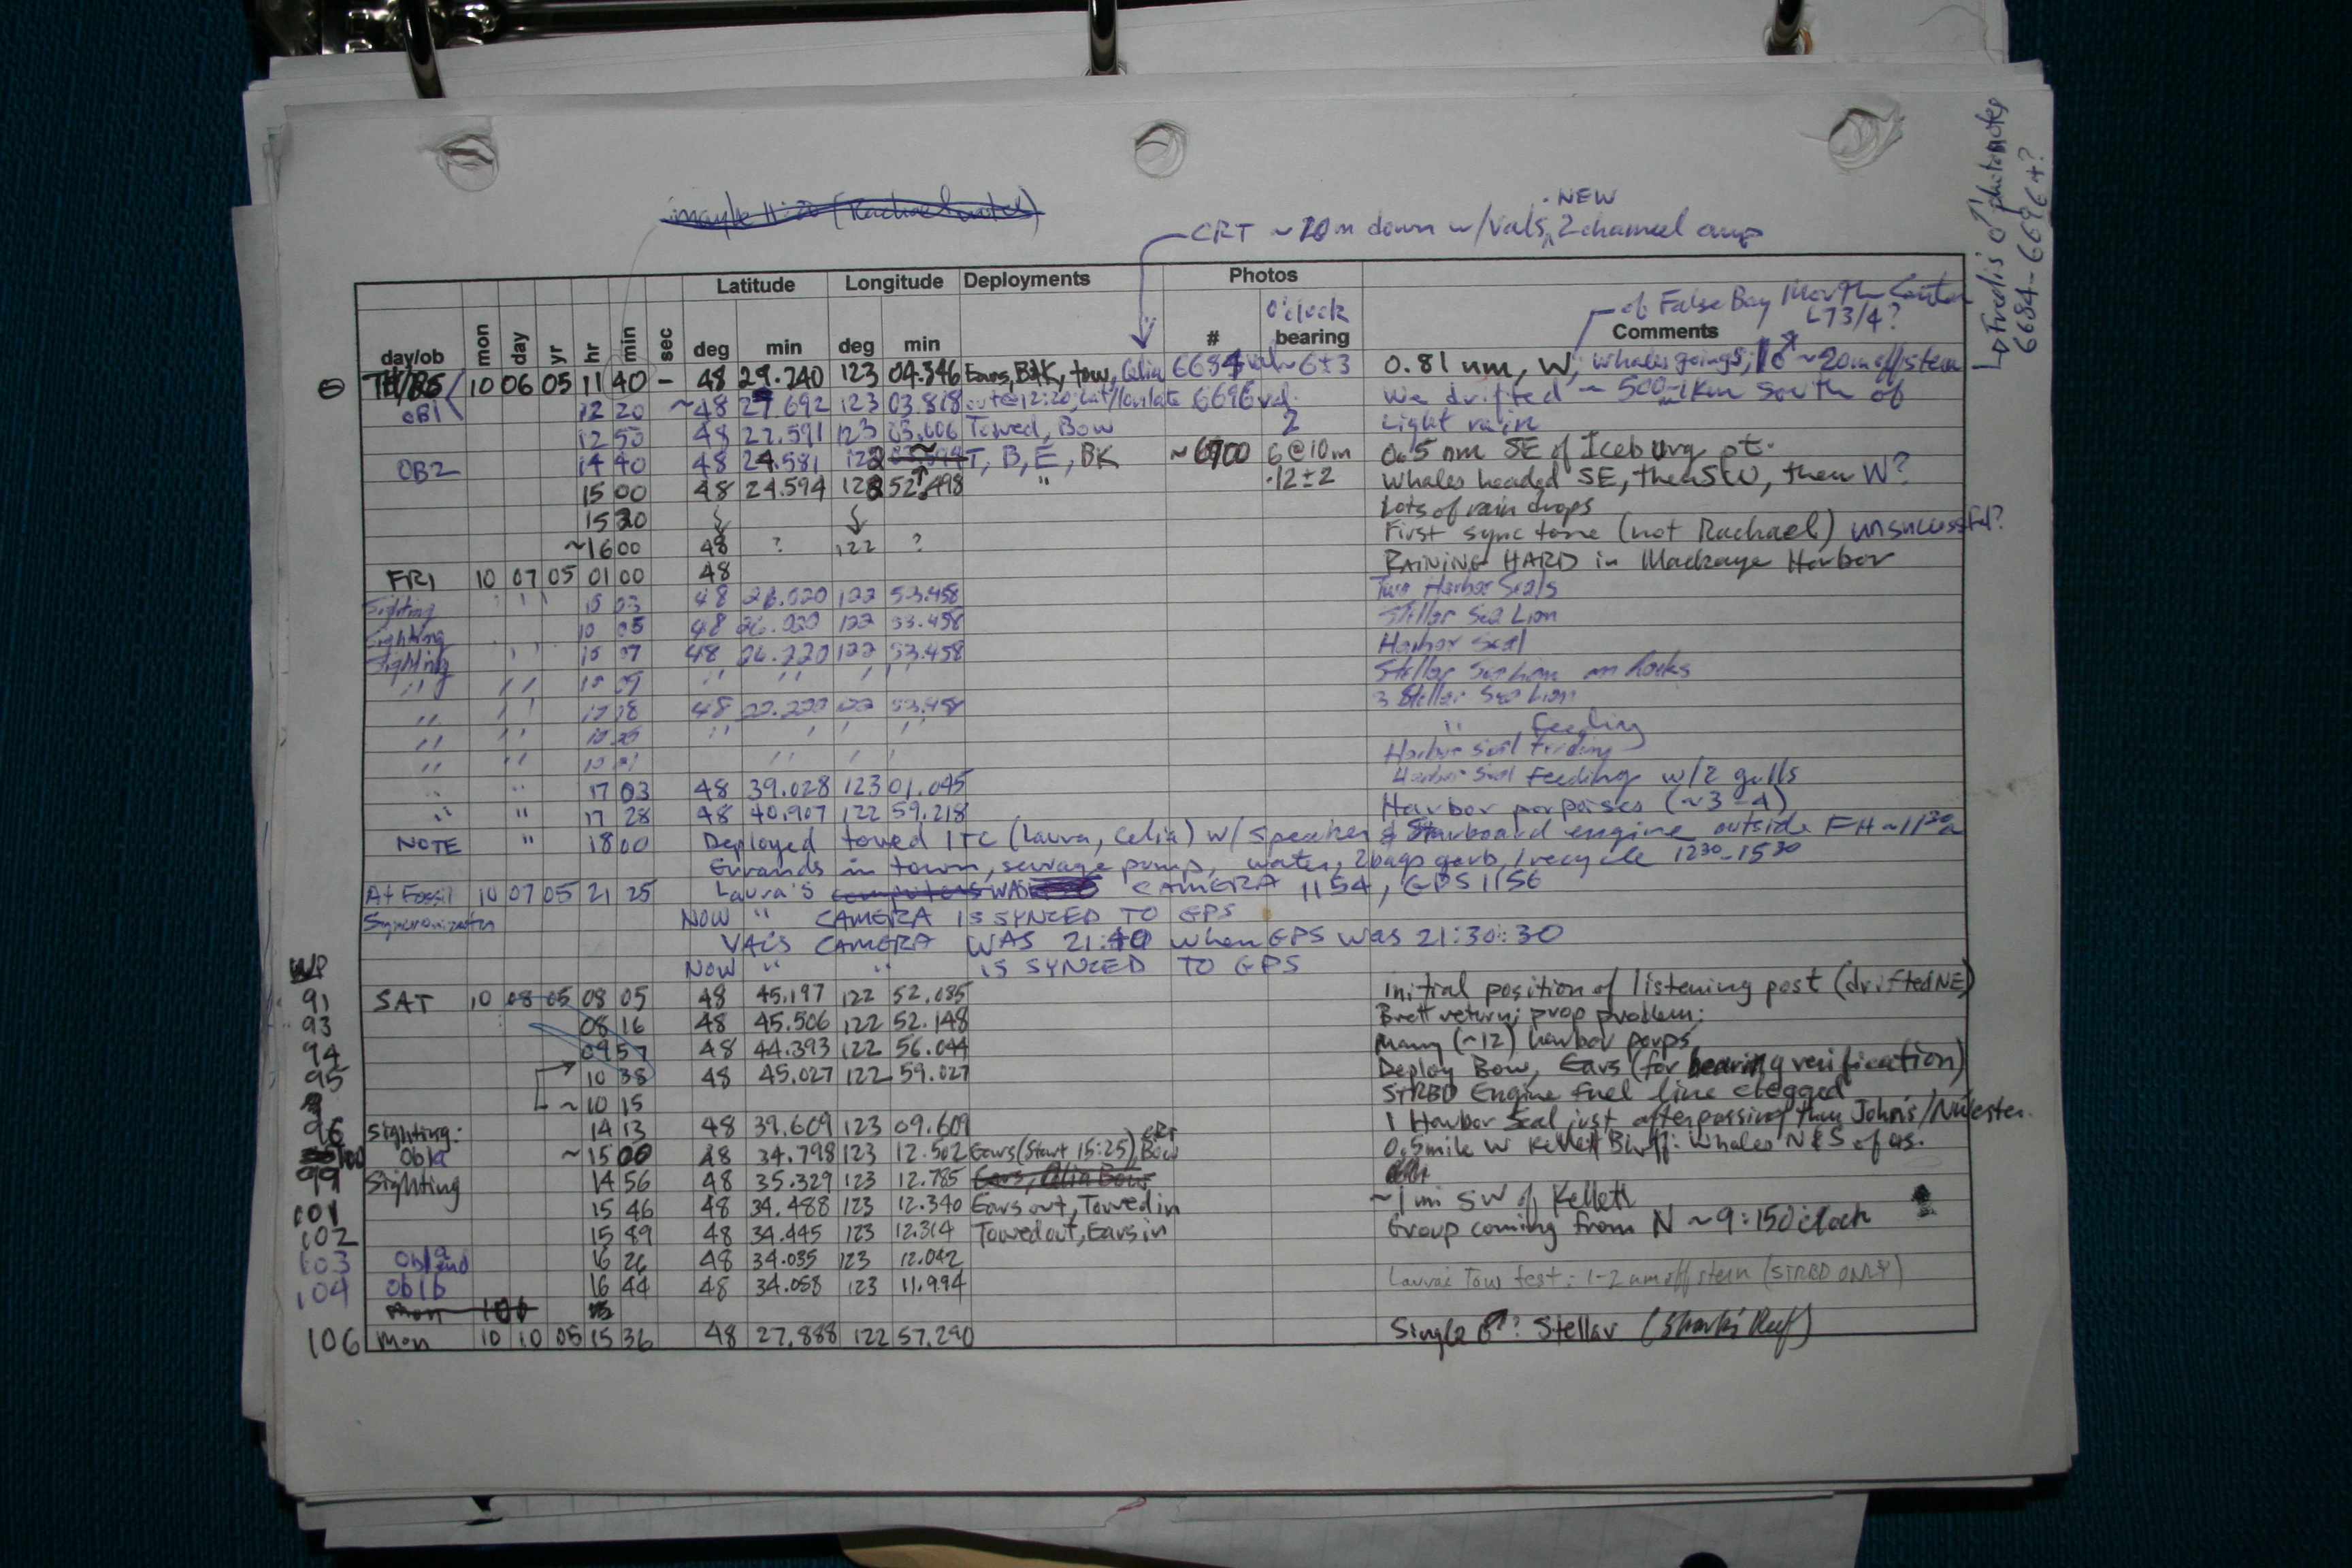 NEW
CRT ~20m down w/ Val's 2 channel amp
Fred's ID photo notes
6684-6696+?
Latitude Longitude Deployments Photos
o'clock
of False Bay North Center
L73/4?
day/ob mon day yr hr min sec deg min deg min # bearing Comments
THURS 10 06 05 11 40 - 48 29.240 123 04.346 Ears, BAK, tow, Celia 6684 val ~6±3 0.81 nm, W, whales going S, ~20m off stern
OB1 12 20 ~48 27.692 123 03.818 out@12:20, lat/lon late 6696 val. We drifted ~500m-1km south of
12 50 48 27.591 123 03.606 Towed, Bow 2 Light rain
OB2 14 40 48 24.581 122 T, B, E, BK ~6700 6@10m 0.5 nm SE of Iceburg pt.
15 00 48 24.594 122 52.498 " 12±2 Whales headed SE, then SW, then W?
15 20 Lots of rain drops
~16 00 48 ? 122 ? First sync tone (not Rachael) unsuccessful?
FRI 10 07 05 01 00 48 RAINING HARD in Mackaye Harbor
Sighting 48 26.020 122 53.458 Two Harbor Seals
Sighting 10 05 48 26.220 122 53.458 Stellar Sea Lion
Sighting 48 26.220 122 53.458 Harbor Seal
" " Stellar Sea Lion on Rocks
" " 48 122 53.458 3 Stellar Sea Lion
" " Feeding
" Harbor Seal Feeding
" " 17 03 48 39.028 123 01.045 Harbor Seal Feeding w/2 gulls
" " 17 28 48 40.907 122 59.218 Harbor porpoises (~3-4)
NOTE " 18 00 Deployed towed ITC (Laura, Celia) w/ speaker & Starboard engine outside FH ~11:30a
Errands in town, sewage pump, water, 2 bags garb, 1 recycle 1230-1530
At Fossil 10 07 05 21 25 Laura's WAS CAMERA 1154, GPS 1156
Syncronization NOW " CAMERA IS SYNCED TO GPS
VAL'S CAMERA WAS 21:40 when GPS was 21:30:30
NOW " " IS SYNCED TO GPS
WP
91 SAT 10 08 05 08 05 48 45.197 122 52.085 initial position of listening post (drifted NE)
93 08 16 48 45.506 122 52.148 Brett return; prop problem;
94 09 57 48 44.393 122 56.044 Many (~12) harbor porps
95 10 38 48 45.027 122 59.027 Deploy Bow, Ears (for bearing verification)
~10 15 STRBD Engine fuel line clogged
96 Sighting: 14 13 48 39.609 123 09.609 1 Harbor Seal just after passing thru John's/
100 Ob1a ~15 00 48 34.798 123 12.502 Ears (Start 15:25), CRT Bow 0.5mile W Kellett Bluff: Whales N&S of us.
99 Sighting 14 56 48 35.329 123 12.785 Ears, Celia Bow
101 15 46 48 34.488 123 12.340 Ears out, Towed in ~1 mi SW of Kellett
102 15 89 48 34.445 123 12.314 Towed out, Ears in Group coming from N ~9:15 o'clock
103 Ob1a end 16 26 48 34.035 123 12.042
104 Ob1b 16 44 48 34.058 123 11.994 Laura's Tow test: 1-2 nm off stern (STRBD ONLY)
mon 10
106 mon 10 10 05 15 36 48 27.888 122 57.290 Single ♂? Stellar (Shark's Reef)